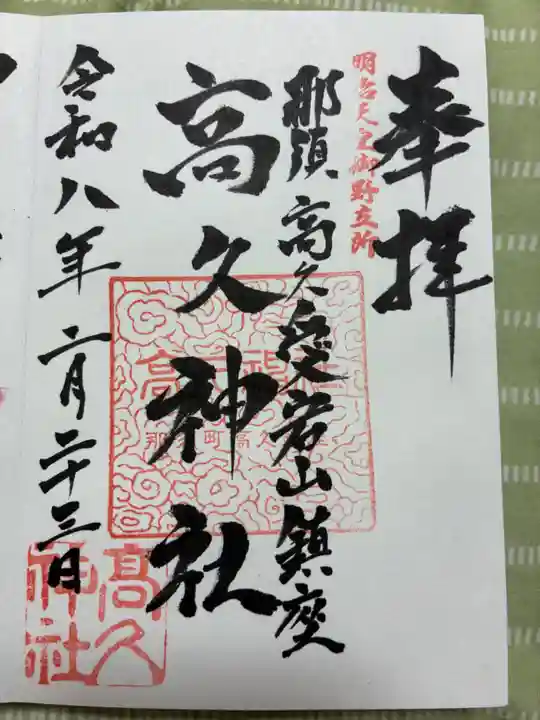 奉拝
明治天皇御野立所
那須高久愛宕山鎮座
高久神社
令和八年二月二十三日
高久神社
那須町高久
高久
神社